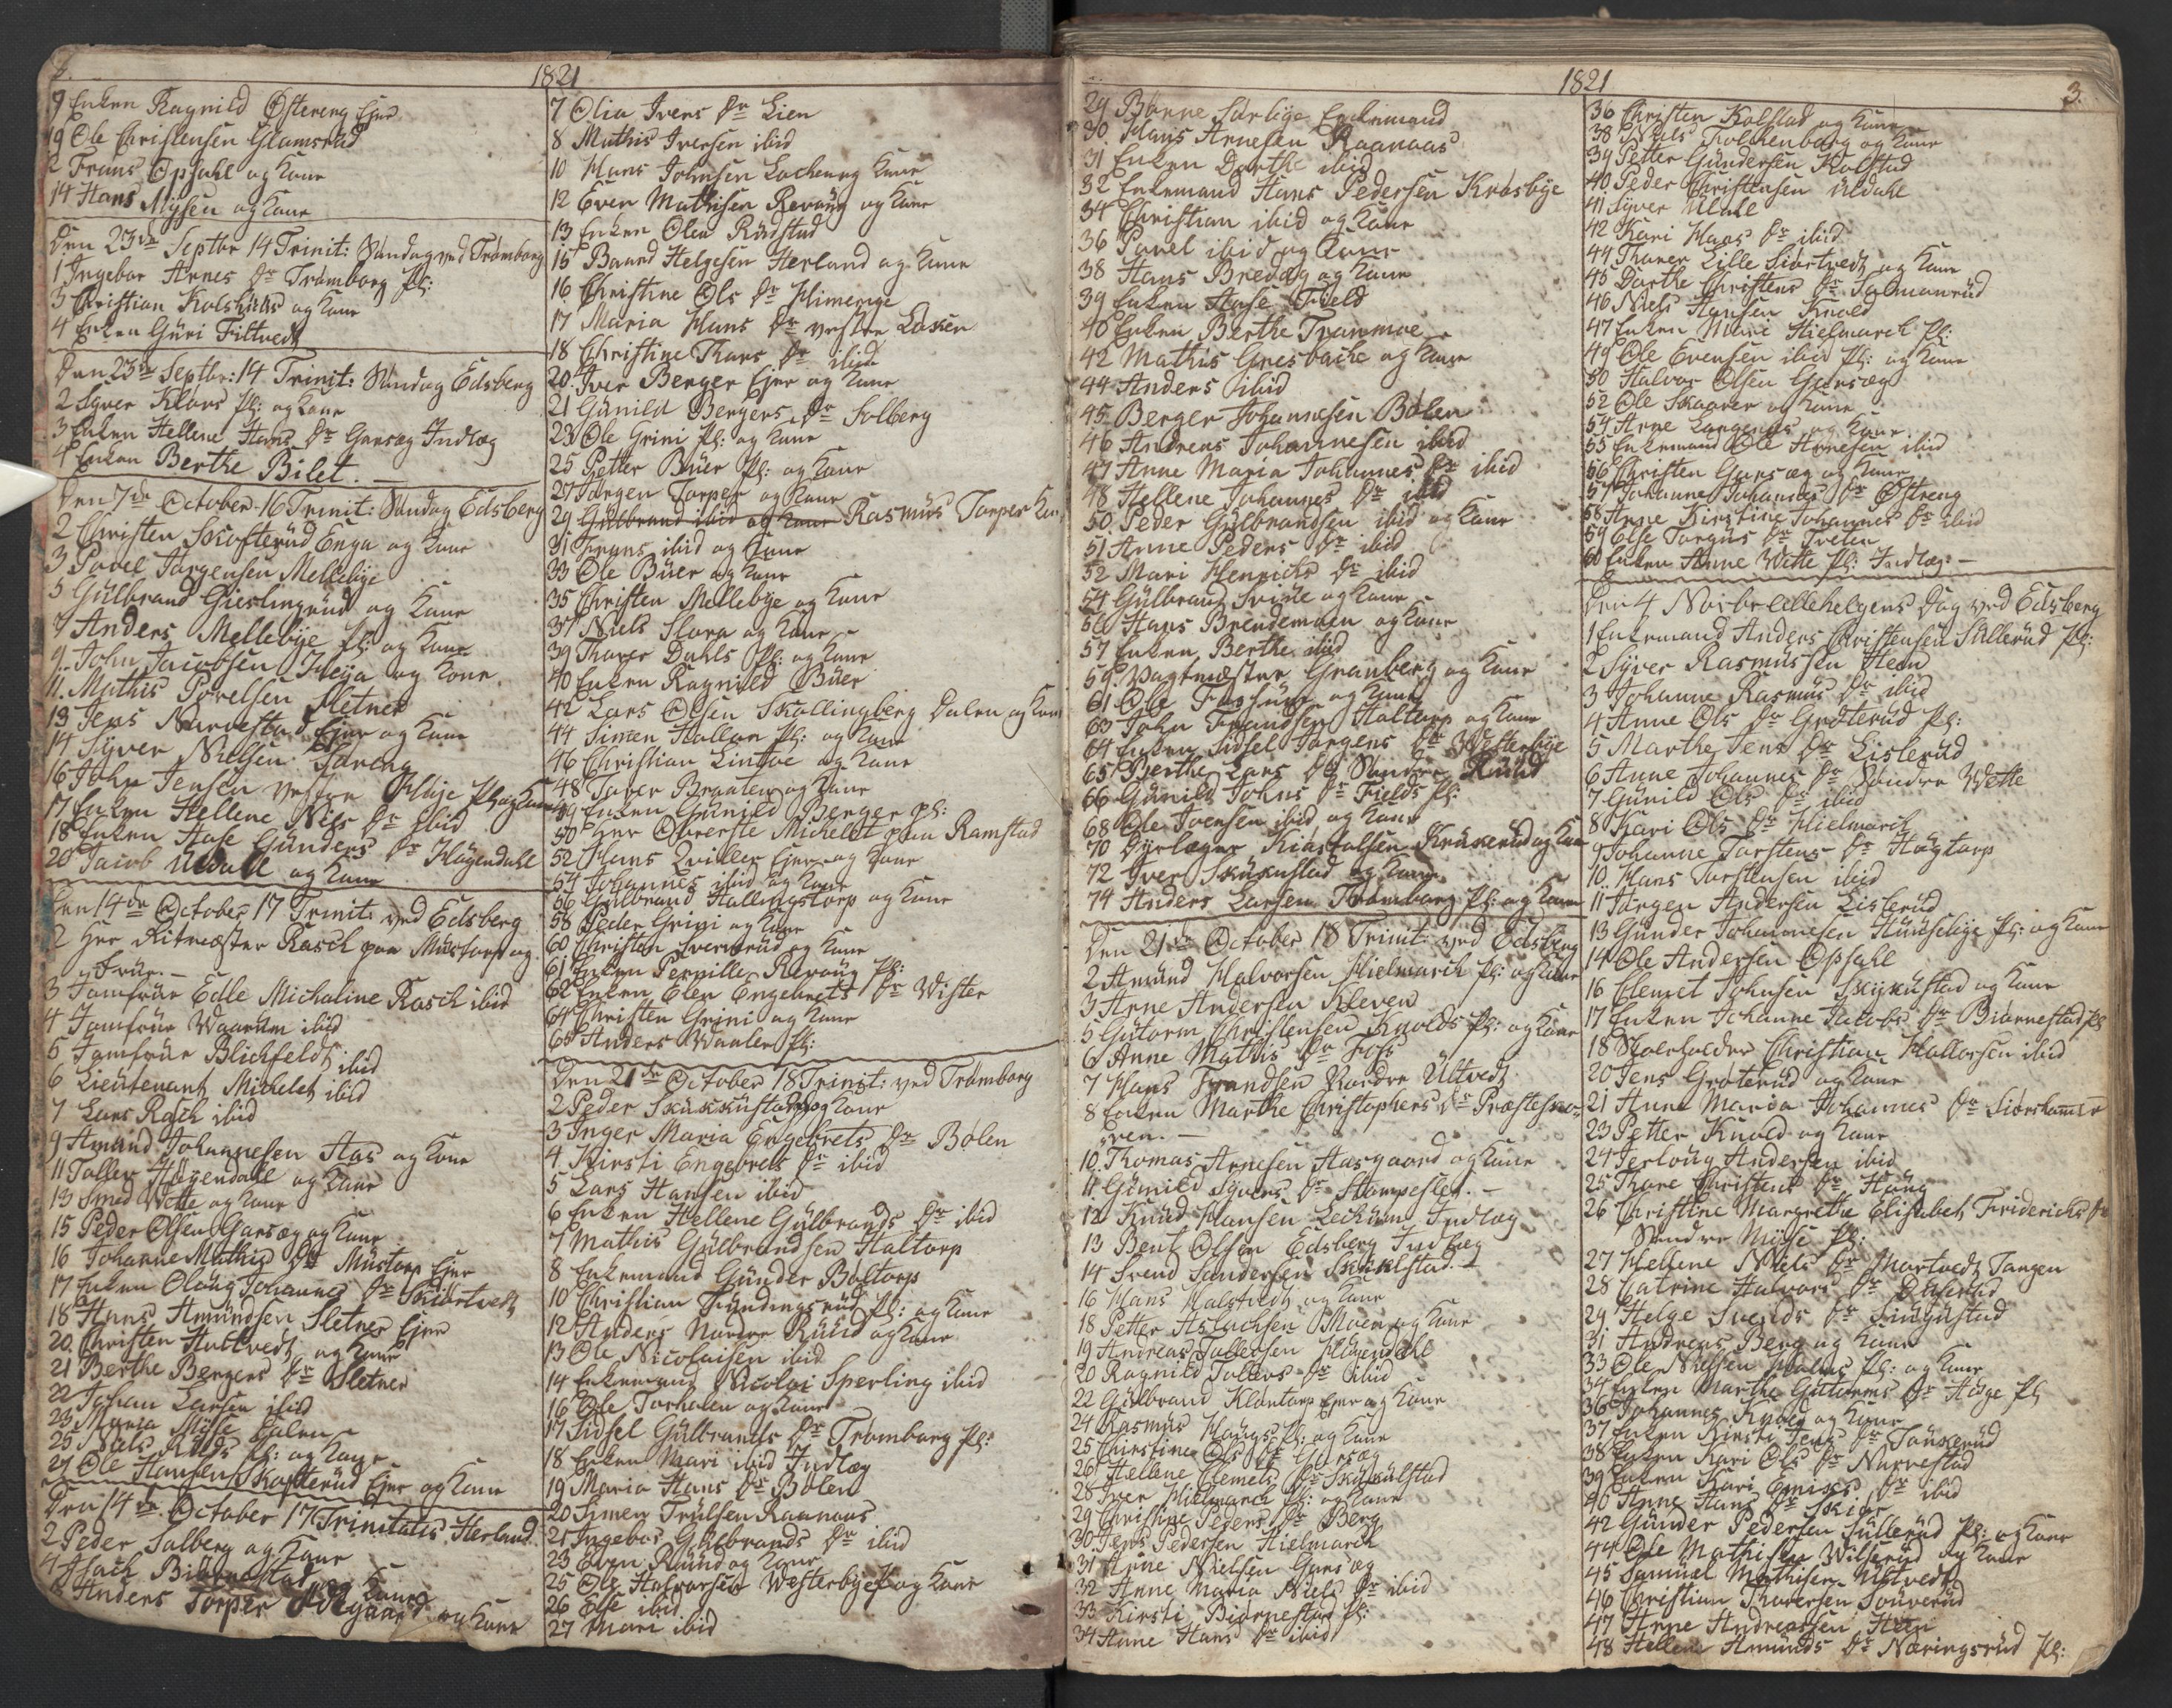 2.
1821
9 Enken Ragnild Østereng Ejer
19 Ole Christensen Glamsrud
2 Frans Opsahl og Kone
14 Hans Mysen og Kone
Den 23de Septbr 14 Trinit: Søndag ved Trømborg
1 Ingebor Arnes Dr Trømborg Pl:
3 Christian Kolshuus og Kone
4 Enken Gûri Filtvedt
Den 23de Septbr: 14 Trinit: Søndag Edsberg
2 Syver Klovs Pl: og Kone
3 Enken Hellene Hans Dr Garsæg Indlæg
4 Enken Berthe Bilet. —
Den 7de October 16 Trinit: Søndag Edsberg
2 Christen Skofterûd Enga og Kone
3 Povel Jørgensen Mellebÿe
5 Gûlbrand Gieslingrûd og Kone
7 Anders Mellebÿe Pl: og Kone
9 John Jacobsen Heÿa og Kone
11. Mathis Povelsen Sletner
13 Jens Narvestad Ejer og Kone
14 Sÿver Nielsen
16 John Jensen vestre Pl: og Kone
17 Enken Hellene Niels Dr ibid
18 Enken Aase Gûnders Dr Högendahl
20 Jacob Ûdahl og Kone
Den 14de October 17 Trinit: ved Edsberg
2 Her Ritmester Rasch paa Mûstorp og
Frûe. —
3 Jomfrûe Edle Micheline Rasch ibid
4 Jomfrûe Waarum ibid
5 Jomfrûe Blichfeldt ibid
6 Lieûtenant Michelet ibid
7 Lars Rasch ibid
9 Amûnd Johannesen Aas og Kone
11 Toller Høgendahl og Kone
13 Smed Wette og Kone
15 Peder Olsen Garsæg og Kone
16 Johanne Mathis Dr Mûstorp Ejer
17 Enken Oloug Johannes Dr Skiørtvedt
18 Hans Amûndsen Sletner Ejer
20. Christen Haltvedt og Kone
21 Berthe Bergers Dr Sletner
22 Johan Larsen ibid
23 Maria Myse Dalen
25 Niels Rûds Pl: og Kone
27 Ole Hansen Skofterûd Ejer og Kone
Den 14de October 17 Trinitatis Herland.
2 Peder Solberg og Kone
4 Isach Biørnestad og Kone
6 Anders Torper Ødegaard og Kone
7 Olia Ivers Dr Lien
8 Mathis Iversen ibid
10 Hans Johnsen Lochen og Kone
12 Even Mathisen Revoûg og Kone
13 Enken Olea Rûdstad
15 Baard Helgesen Herland og Kone
16 Christine Ols Dr Himenge
17 Maria Hans Dr vestre Løken
18 Christine Thors Dr ibid
20. Iver Berger Ejer og Kone
21 Gûnild Bergers Dr Solberg
23 Ole Grini Pl: og Kone
25 Petter Bûer Pl: og Kone
27 Jørgen Torper og Kone
29 Gûlbrand ibid og Kone Rasmûs Torper Kone
31 Frans ibid og Kone
33 Ole Bûer og Kone
35 Christen Mellebÿe og Kone
37 Niels Slora og Kone
39 Thover Dahls Pl: og Kone
40 Enken Ragnild Bûer
42 Lars Olsen Skallingberg Dalen og Kone
44 Simen Hallon Pl: og Kone
46 Christian Lintoe og Kone
48 Tover Braaten og Kone
49 Enken Gûnild Berger Pl:
50 Her Oberste Michelet paa Ramstad
52 Hans Qviller Ejer og Kone
54 Johannes ibid og Kone
56 Gûlbrand Hallingstorp og Kone
58 Peder Grini og Kone
60 Christen Sververûd og Kone
61 Enken Pernille Revoûg Pl:
62 Enken Elen Engebrets Dr Wister
64 Christen Grini og Kone
65 Anders Waaler Pl:
Den 21de October 18 Trinit: ved Trømborg
2 Peder Skûkkûstad og Kone
3 Inger Maria Engebrets Dr Bølen
4 Kirsti Engebrets Dr ibid
5 Lars Hansen ibid
6 Enken Hellene Gûlbrands Dr ibid
7 Mathis Gûlbrandsen Haltorp
8 Enkemand Gûnder Bøltorp
10 Christian Fûndingsrûd Pl: og Kone
12 Anders Nordre Rûûd og Kone
13 Ole Nicolaisen ibid
14 Enkemand Nicolai Sperling ibid
16 Ole Torholen og Kone
17 Sidsel Gûlbrands Dr Trømborg Pl:
18 Enken Mari ibid Indlæg
19 Maria Hans Dr Bølen
20 Simen Trûlsen Raanaas
21 Ingebor Gûlbrands Dr ibid
23 Even Rûûd og Kone
25 Ole Halvorsen Westerbÿe og Kone
26 Else ibid
27 Mari ibid
1821
3.
29 Bønne Sørlige Enkemand
30. Hans Arnesen Raanaas
31 Enken Dorthe ibid
32 Enkemand Hans Pedersen Krosbÿe
34 Christian ibid og Kone
36 Povel ibid og Kone
38 Hans Bredeg og Kone
39 Enken Aase Field
40 Enken Berthe Tranmoe
42 Mathis Gresbache og Kone
44 Anders ibid
45 Berger Johannesen Bølen
46 Andreas Johannesen ibid
47 Anne Maria Johannes Dr ibid
48 Hellene Johannes Dr ibid
50. Peder Gûlbrandsen ibid og Kone
51 Anne Peders Dr ibid
52 Mari Henrichs Dr ibid
54 Gûlbrand og Kone
56 Hans Brendemoen og Kone
57 Enken Berthe ibid
59. Vagtmester Granberg og Kone
61 Ole og Kone
63 John Frandsen Haltorp og Kone
64 Enken Sidsel Jørgens Dr Westerbÿe
65 Berthe Lars Dr Søndre Rûûd
66 Gûnild Johns Dr Fields Pl:
68 Ole Ivensen ibid og Kone
70 Dyrlæge Kiøstolsen Krûserûd og Kone
72 Iver Skûkûstad og Kone
74 Anders Larsen Trømborg Pl: og Kone
Den 21de October 18 Trinit: ved Edsberg
2 Amûnd Halvorsen Hielmarch Pl: og Kone
3 Arne Andersen Kleven
5 Gûtorm Christensen Knolds Pl: og Kone
6 Anne Mathis Dr Foss
7 Hans Frandsen Nordre Ûltvedt
8 Enken Marthe Christophers Dr Præsteskoven. —
10. Thomas Arnesen Aasgaard og Kone
11 Gûnild Syvers Dr Stompesletten. —
12 Knûd Hansen Lechûm Indlæg
13 Bent Olsen Edsberg Indlæg
14 Svend Sandersen Skûkûstad. —
16 Hans Halstvedt og Kone
18 Petter Aslachsen Moen og Kone
19 Andreas Tollefsen Högendahl
20 Ragnild Tollevs Dr ibid
22 Gûlbrand Kløntorp Ejer og Kone
24 Rasmûs Houg Pl: og Kone
25 Christine Ols Dr Garsæg
26 Hellene Clemets Dr Skûkûlstad
28 Iver Hielmarch Pl: og Kone
29 Christine Peders Dr Berg
30. Jens Pedersen Hielmarch
31 Arne Nielsen Garsæg
32 Anne Maria Niels Dr ibid
33 Kirsti Biørnestad Pl:
34 Anne Hans Dr ibid
36 Christen Kolstad og Kone
38 Niels Folkenborg og Kone
39 Petter Gûndersen Kolstad
40 Peder Christensen Ûdahl
41 Syver Ûdahl
42 Kari Hans Dr ibid
44 Thorer Lille Siørtvedt og Kone
45 Dorthe Christens Dr Salmonrûd
46 Niels Hansen Knold
47 Enken Marie Hielmarch Pl:
49 Ole Evensen ibid Pl: og Kone
50 Halvor Olsen Garsæg
52 Ole Skaarer og Kone
54 Arne Langenæs og Kone
55 Enkemand Ole Arnesen ibid
56 Christen Garsæg og Kone
57 Johanne Johannes Dr Østreng
58 Anne Kirstine Johannes Dr ibid
59 Else Torgûs Dr Treten
60 Enken Anne Wette Pl: Indlæg —
Den 4 Novbr Allehelgens Dag ved Edsberg
1 Enkemand Anders Christensen Sillerûd Pl:
2 Syver Rasmûssen Heen
3 Johanne Rasmûs Dr ibid
4 Anne Ols Dr Grøterûd Pl:
5 Marthe Jens Dr Lislerûd
6 Anne Johannes Dr Søndre Wette
7 Gûnild Ols Dr ibid
8 Kari Ols Dr Hielmarch
9 Johanne Torstens Dr Høgtorp
10. Hans Torstensen ibid
11 Jørgen Andersen Lislerûd
13 Gûnder Johannesen Hûûselige Pl: og Kone
14 Ole Andersen Opsahl
16 Clemet Johnsen Skûkûstad og Kone
17 Enken Johanne Jacobs Dr Biørnestad Pl:
18 Skoleholder Christian Hallorsen ibid
20 Jens Grøterûd og Kone
21 Anne Maria Johannes Dr
23 Petter Knold og Kone
24 Terloûg Andersen ibid
25 Thore Christens Dr Hoûg
26 Christine Margrethe Elisabet Friderichs Dr
Søndre Mÿse Pl:
27 Hellene Niels Dr Martvedt Tangen
28 Catrine Halvors Dr
29. Helge Svends Dr
31 Andreas Berg og Kone
33 Ole Nielsen Pl: og Kone
34 Enken Marthe Gûttorms Dr Pl
36 Johannes Knold og Kone
37 Enken Kirsti Jens Dr
38 Enken Kari Ols Dr Narvestad
39 Enken Kari Dr ibid
40 Anne Hans Dr Skiør
42 Gûnder Pedersen Sûllerûd Pl: og Kone
44 Ole Mathisen Wilserûd og Kone
45 Samûel Mathisen Ûltvedt
46 Christian Thoversen Soûverûd
47 Arne Andreassen Heen
48 Hellene Amûnds Dr Næringsrûd Pl: